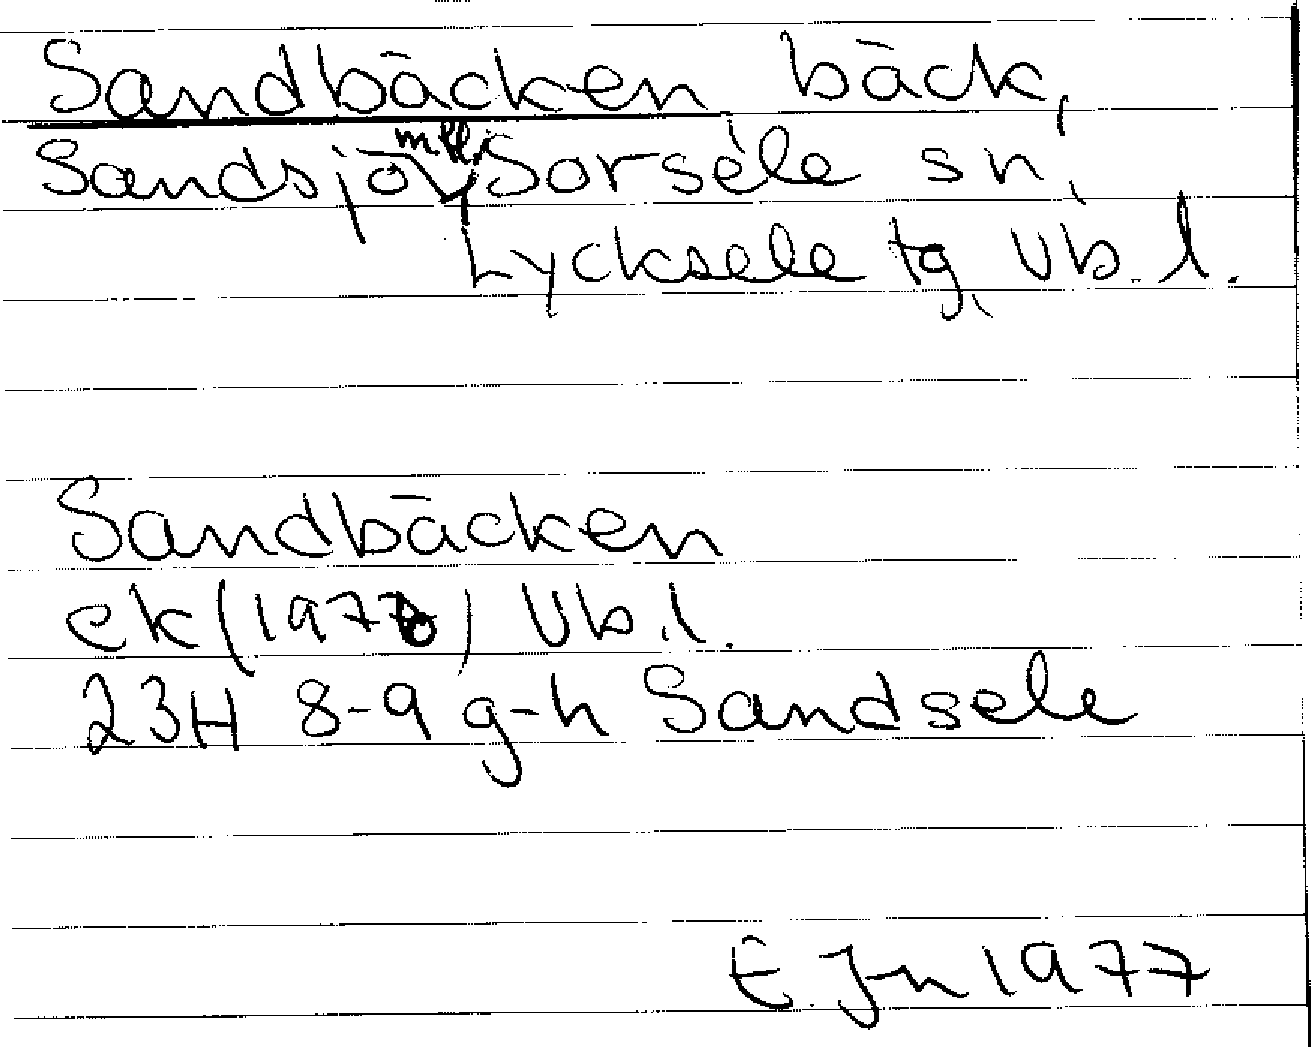 Sandbäcken bäck,
Sandsjö m.fl., Sorsele sn,
Lycksele tg, Vb. l.
Sandbäcken
ek (1976) Vb. l.
23H 8-9 g-h Sandsele
E. Jn 1977